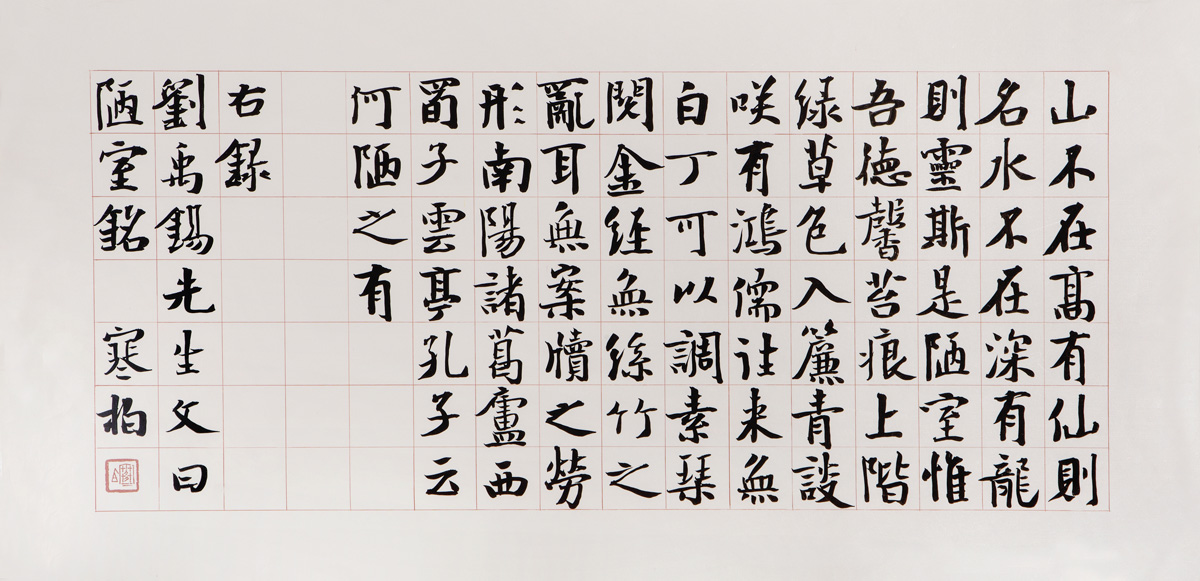 山不在髙有仙則
名水不在深有龍
則靈斯是陋室惟
吾德馨苔痕上階
緑草色入簾青談
咲有鴻儒往来無
白丁可以調素琴
閲金經無絲竹之
亂耳無案牘之勞
形南陽諸葛廬西
蜀子雲亭孔子云
何陋之有
右録
劉禹錫先生文曰
陋室銘 寒柏